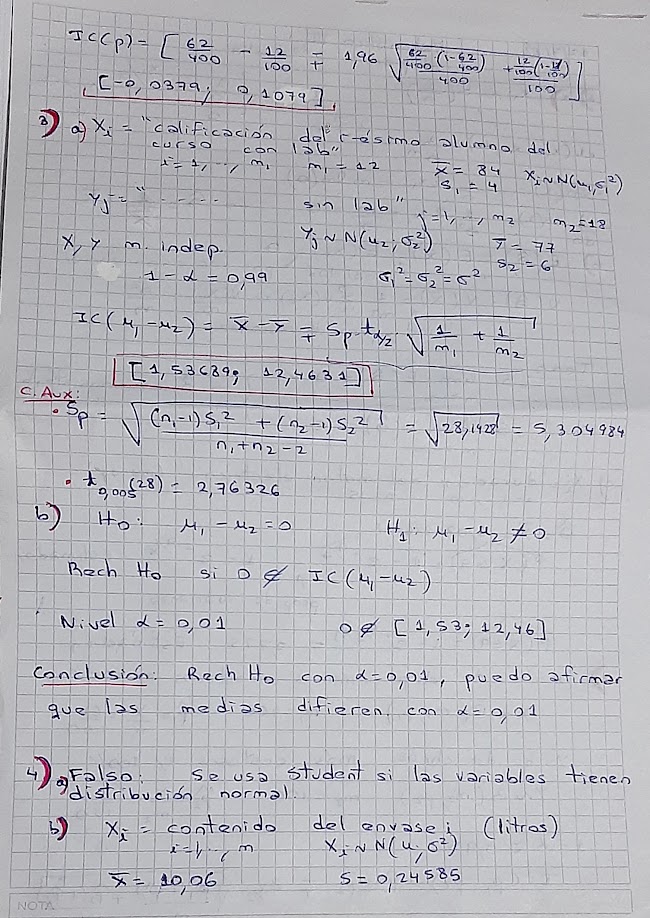 IC(p) = [ 62/400 - 12/100 ∓ 1,96 √( 62/400 (1-62/400)/400 + 12/100 (1-12/100)/100 ) ]
[-0,0379; 0,1079]
3) a) Xi = "calificación del i-ésimo alumno del
curso con lab"
i=1,.., n1 n1 = 12 x̄ = 84 Xi ~ N(μ1, σ1²)
S1 = 4
Yj = " - - - - - sin lab"
j=1,.., n2 n2=18
X, Y m. indep. Yj ~ N(μ2; σ2²) ȳ = 77
S2 = 6
1-α = 0,99 σ1² = σ2² = σ²
IC(μ1-μ2) = X̄ - Ȳ ∓ Sp · tα/2 · √( 1/n1 + 1/n2 )
[1,53689; 12,4631]
C. Aux:
• Sp = √( ((n1-1) S1² + (n2-1) S2²) / (n1+n2-2) ) = √28,1428 = 5,304984
• t0,005 (28) = 2,76326
b) H0: μ1 - μ2 = 0 H1: μ1 - μ2 ≠ 0
Rech H0 si 0 ∉ IC(μ1-μ2)
Nivel α = 0,01 0 ∉ [1,53; 12,46]
Conclusión: Rech H0 con α=0,01, puedo afirmar
que las medias difieren con α=0,01
4) a) Falso: Se usa Student si las variables tienen
distribución normal.
b) Xi = contenido del envase i (litros)
i=1,.., n Xi ~ N(μ; σ²)
x̄ = 10,06 S = 0,24585
NOTA